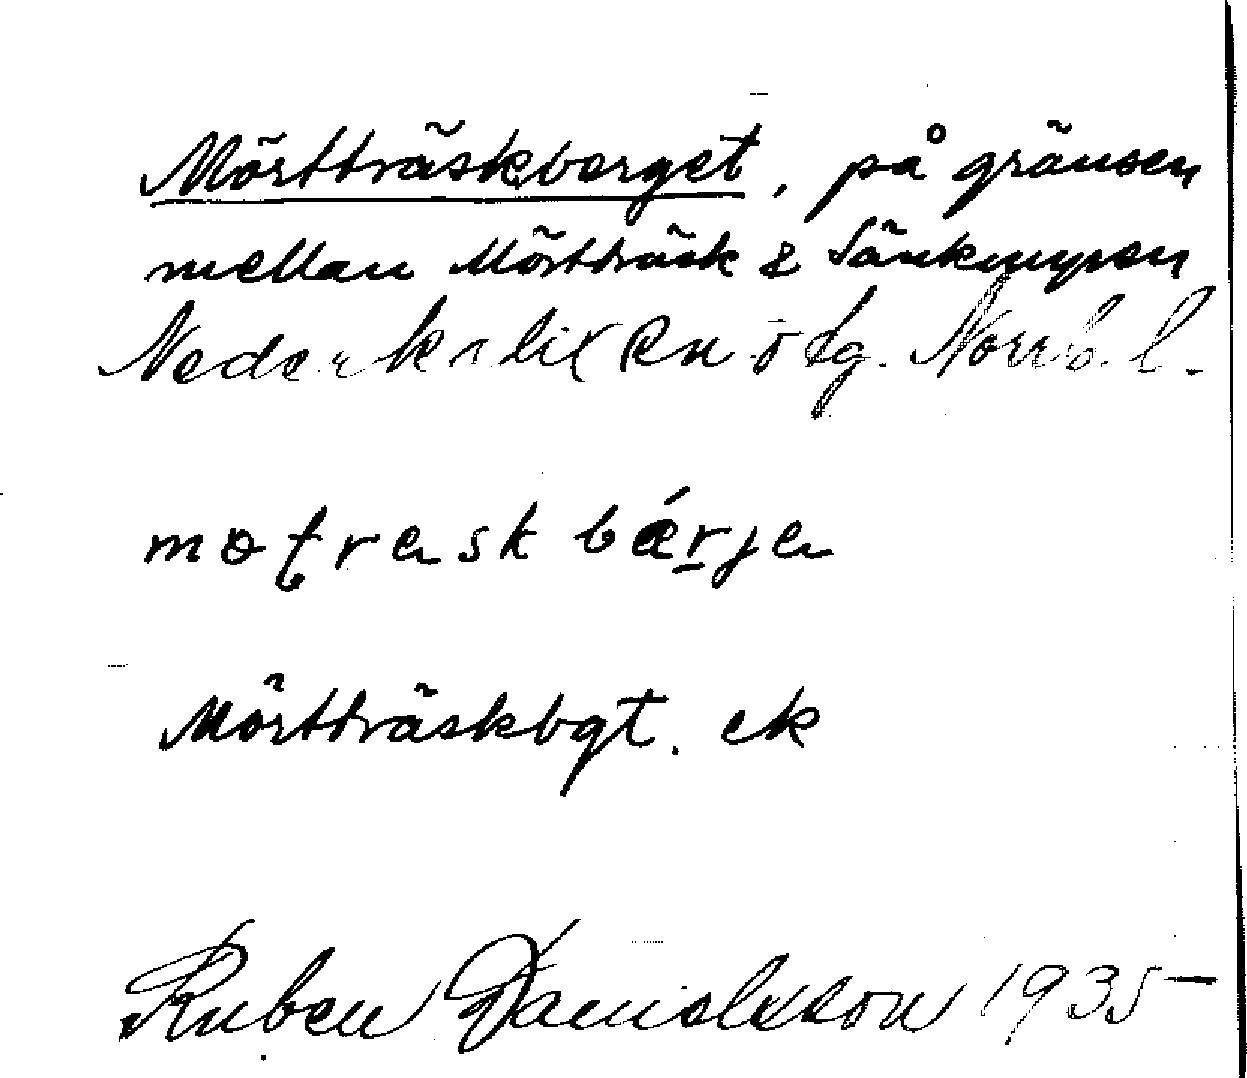 Mörtträskberget, på gränsen
mellan Mörtträsk & Sänkmyren
Nederkalix sn ö tg. Norrb. l.
møtrask bǽrjɐ
Mörtträskbgt. ek
Ruben Danielsson 1935